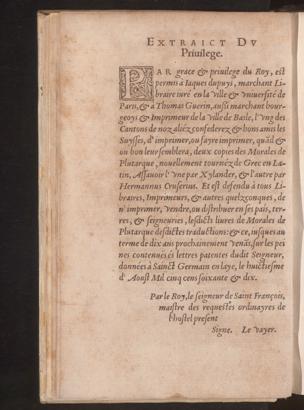 EXTRAICT DV
Priuilege.
PAR grace & priuilege du Roy, est
permis à Iaques dupuys, marchant Li-
braire iuré en la ville & vniuersité de
Paris, & a Thomas Guerin, aussi marchant bour-
geoys & Imprimeur de la ville de Basle, l'vng des
Cantons de noz aliéz confederez & bons amis les
Suysses, d'imprimer, ou fayre imprimer, quād &
ou bon leur semblera, deux copies des Morales de
Plutarque, nouellement tournéz de Grec en La-
tin, Assauoir l'vne par Xylander, & l'autre par
Hermannus Cruserius. Et est defendu à tous Li-
braires, Imprimeurs, & autres quelzconques, de
n'imprimer, vendre, ou distribuer en ses païs, ter-
res, & seigneuries, lesdicts liures de Morales de
Plutarque desdictes traductions: & ce, iusques au
terme de dix ans prochainement venās, sur les pei
nes contenues és lettres patentes dudit Seigneur,
données à Sainct Germain en laye, le huictiesme
d'Aoust Mil cinq cens soixante & dix.
Par le Roy, le seigneur de Saint François,
maistre des requestes ordinayres de
l'hostel present
Signe. Le vayer.